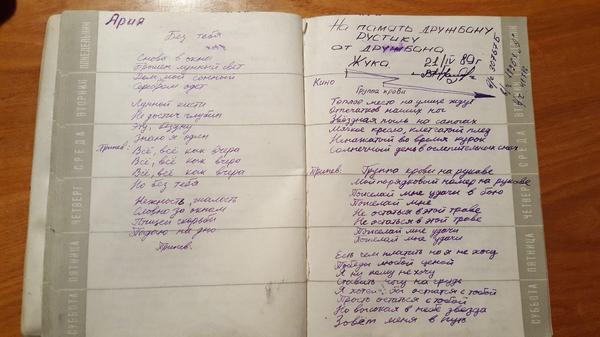 Ария
Без тебя
Снова в окно
Брошен лунный свет
Дом мой сонный
Серебром одет
Лунный кисти
Не достич глубин
Эту бездну
Знаю я один
Припев: Всё, всё как вчера
Всё, всё как вчера
Всё, всё как вчера
Но без тебя
Нежность, жалость
Словно за окном
Птицей скорбей
Припев.
ПОНЕДЕЛЬНИК
ВТОРНИК
СРЕДА
ЧЕТВЕРГ
ПЯТНИЦА
СУББОТА
На память дружбану
Рустику
от дружбана
Жука 21/IV 89г
Кино
Группа крови
Топлое место на улице ждут
Отпечатков наших ног
Звёздная пыль на сапогах
Мягкое кресло, клетчатый плед
Ненажатый во время курок
Солнечный день в ослепительных снах
Припев: Группа крови на рукаве
Мой порядковый номер на рукаве
Пожелай мне удачи в бою
Пожелай мне
Не остаться в этой траве
Не остаться в этой траве
Пожелай мне удачи
Пожелай мне удачи
Есть чем платить но я не хочу
Победы любой ценой
Я ни кому не хочу
Ставить ногу на грудь
Я хотел бы остатся с тобой
Просто остаться с тобой
Но высокая в небе звезда
Зовёт меня в путь
СРЕДА
ЧЕТВЕРГ
ПЯТНИЦА
СУББОТА